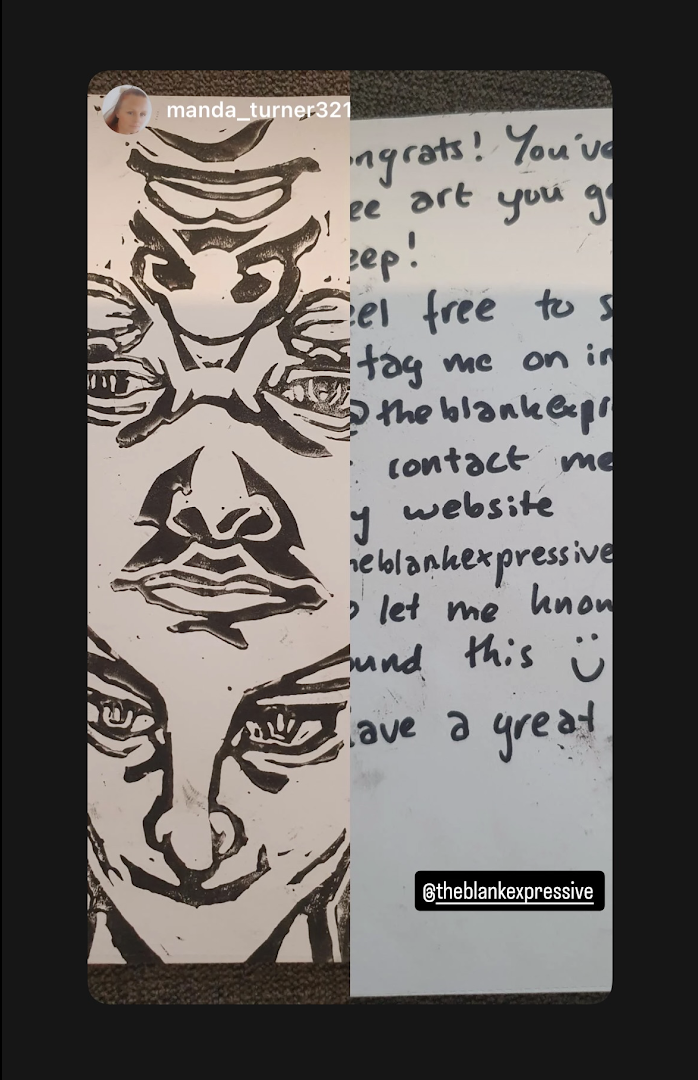 manda_turner321
ngrats! You've
ee art you g
eep!
eel free to s
tag me on in
@theblankexpr
contact me
y website
heblankexpressive
o let me know
ound this
ave a great
@theblankexpressive